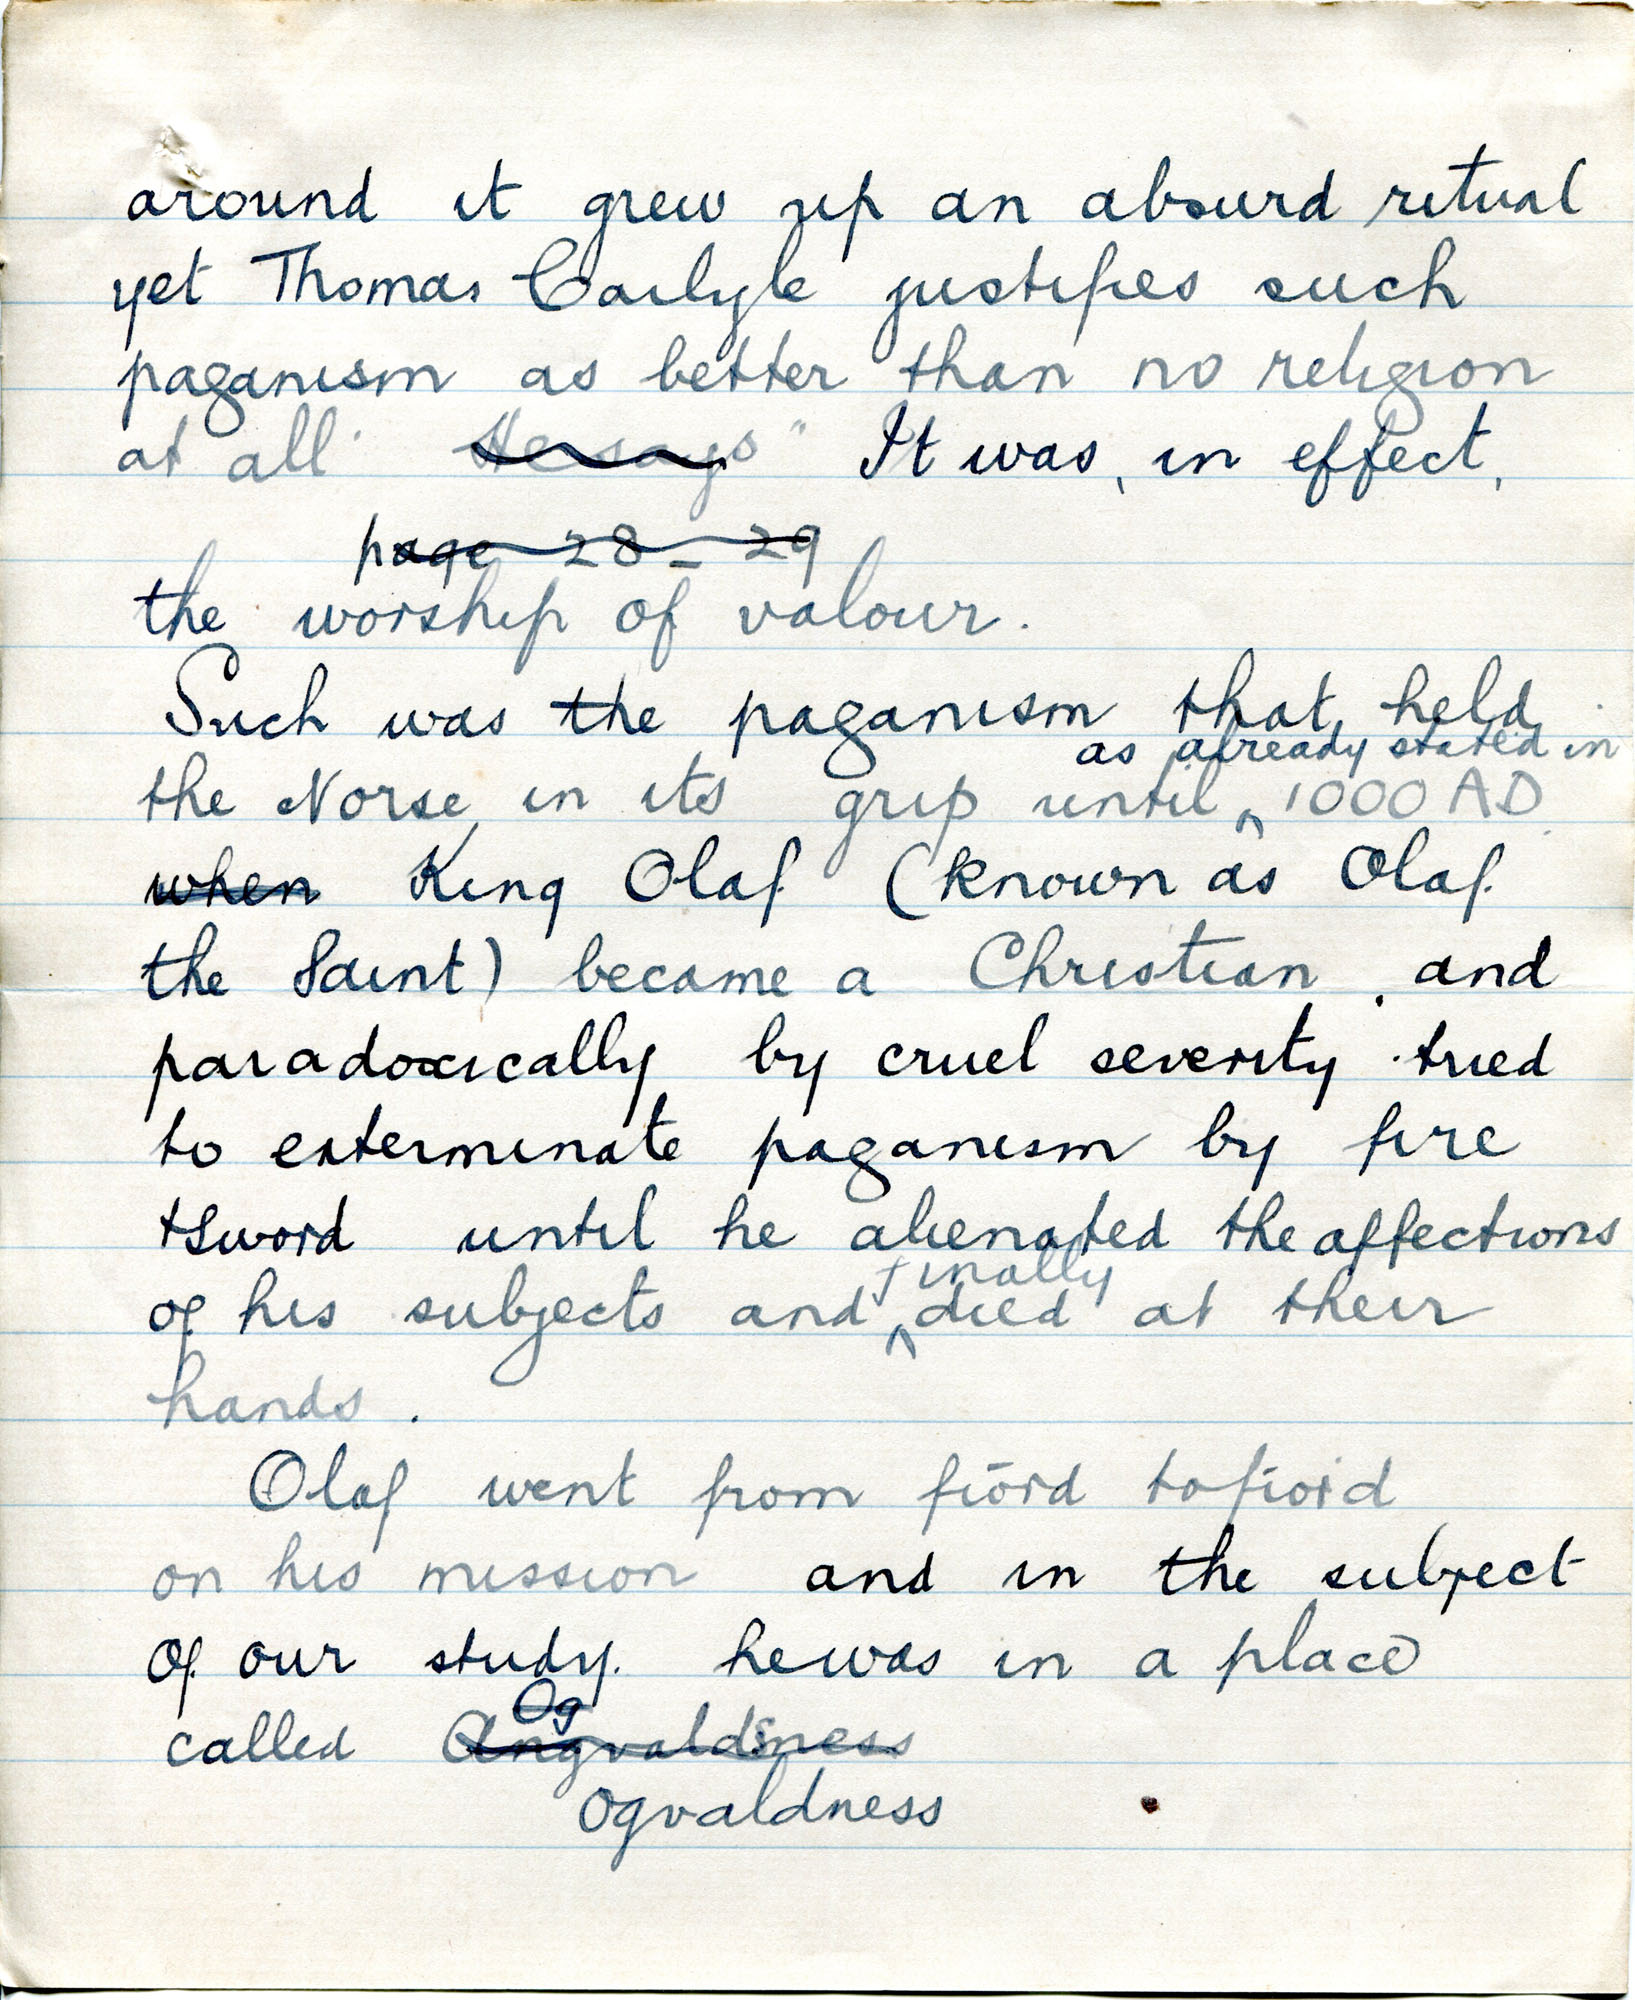 around it grew up an absurd ritual
yet Thomas Carlyle justifies such
paganism as better than no religion
at all. He says " It was, in effect,
page 28 - 29
the worship of valour.
Such was the paganism that held
as already stated in
the Norse, in its grip until ^ 1000 AD.
when King Olaf (known as Olaf
the Saint) became a Christian, and
paradoxically by cruel severity tried
to exterminate paganism by fire
+ sword until he alienated the affections
finally
of his subjects and ^ died at their
hands.
Olaf went from fiord to fiord
on his mission and in the subject
of our study. he was in a place
Og
called Angvaldsness
Ogvaldness